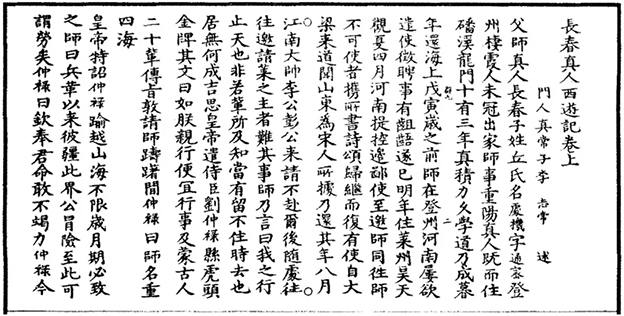 長春真人西遊記卷上
門人真常子李 志常 述
父師真人長春子姓丘氏名處機字通密登
州棲霞人未冠出家師事重陽真人既而住
磻溪龍門十有三年真積力久學道乃成暮
年還海上戊寅歲之前師在登州河南屢欲
遣使徵聘事有齟齬遂已明年住萊州昊天
觀夏四月河南提控邊鄙使至邀師同往師
不可使者攜所書詩頌歸繼而復有使自大
梁来道聞山東為宋人所據乃還其年八月
江南大帥李公彭公来請不赴爾後隨處往
往邀請萊之主者難其事師乃言曰我之行
止天也非若輩所及知當有留不住時去也
居無何成吉思皇帝遣侍臣劉仲祿縣虎頭
金牌其文曰如朕親行便宜行事及蒙古人
二十輩傳旨敦請師躊躇間仲祿曰師名重
四海
皇帝特詔仲祿踰越山海不限歲月期必致
之師曰兵革以来彼疆此界公冒險至此可
謂勞矣仲祿曰欽奉君命敢不竭力仲祿今